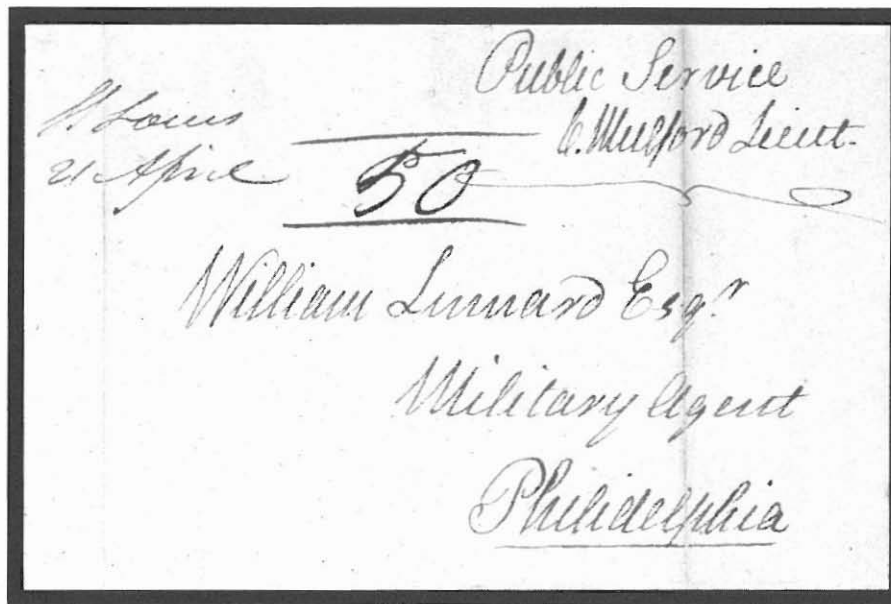 Public Service
C. Mulford Lieut.
St Louis
21 April
50
William Linnard Esqr
Military Agent
Philidelphia